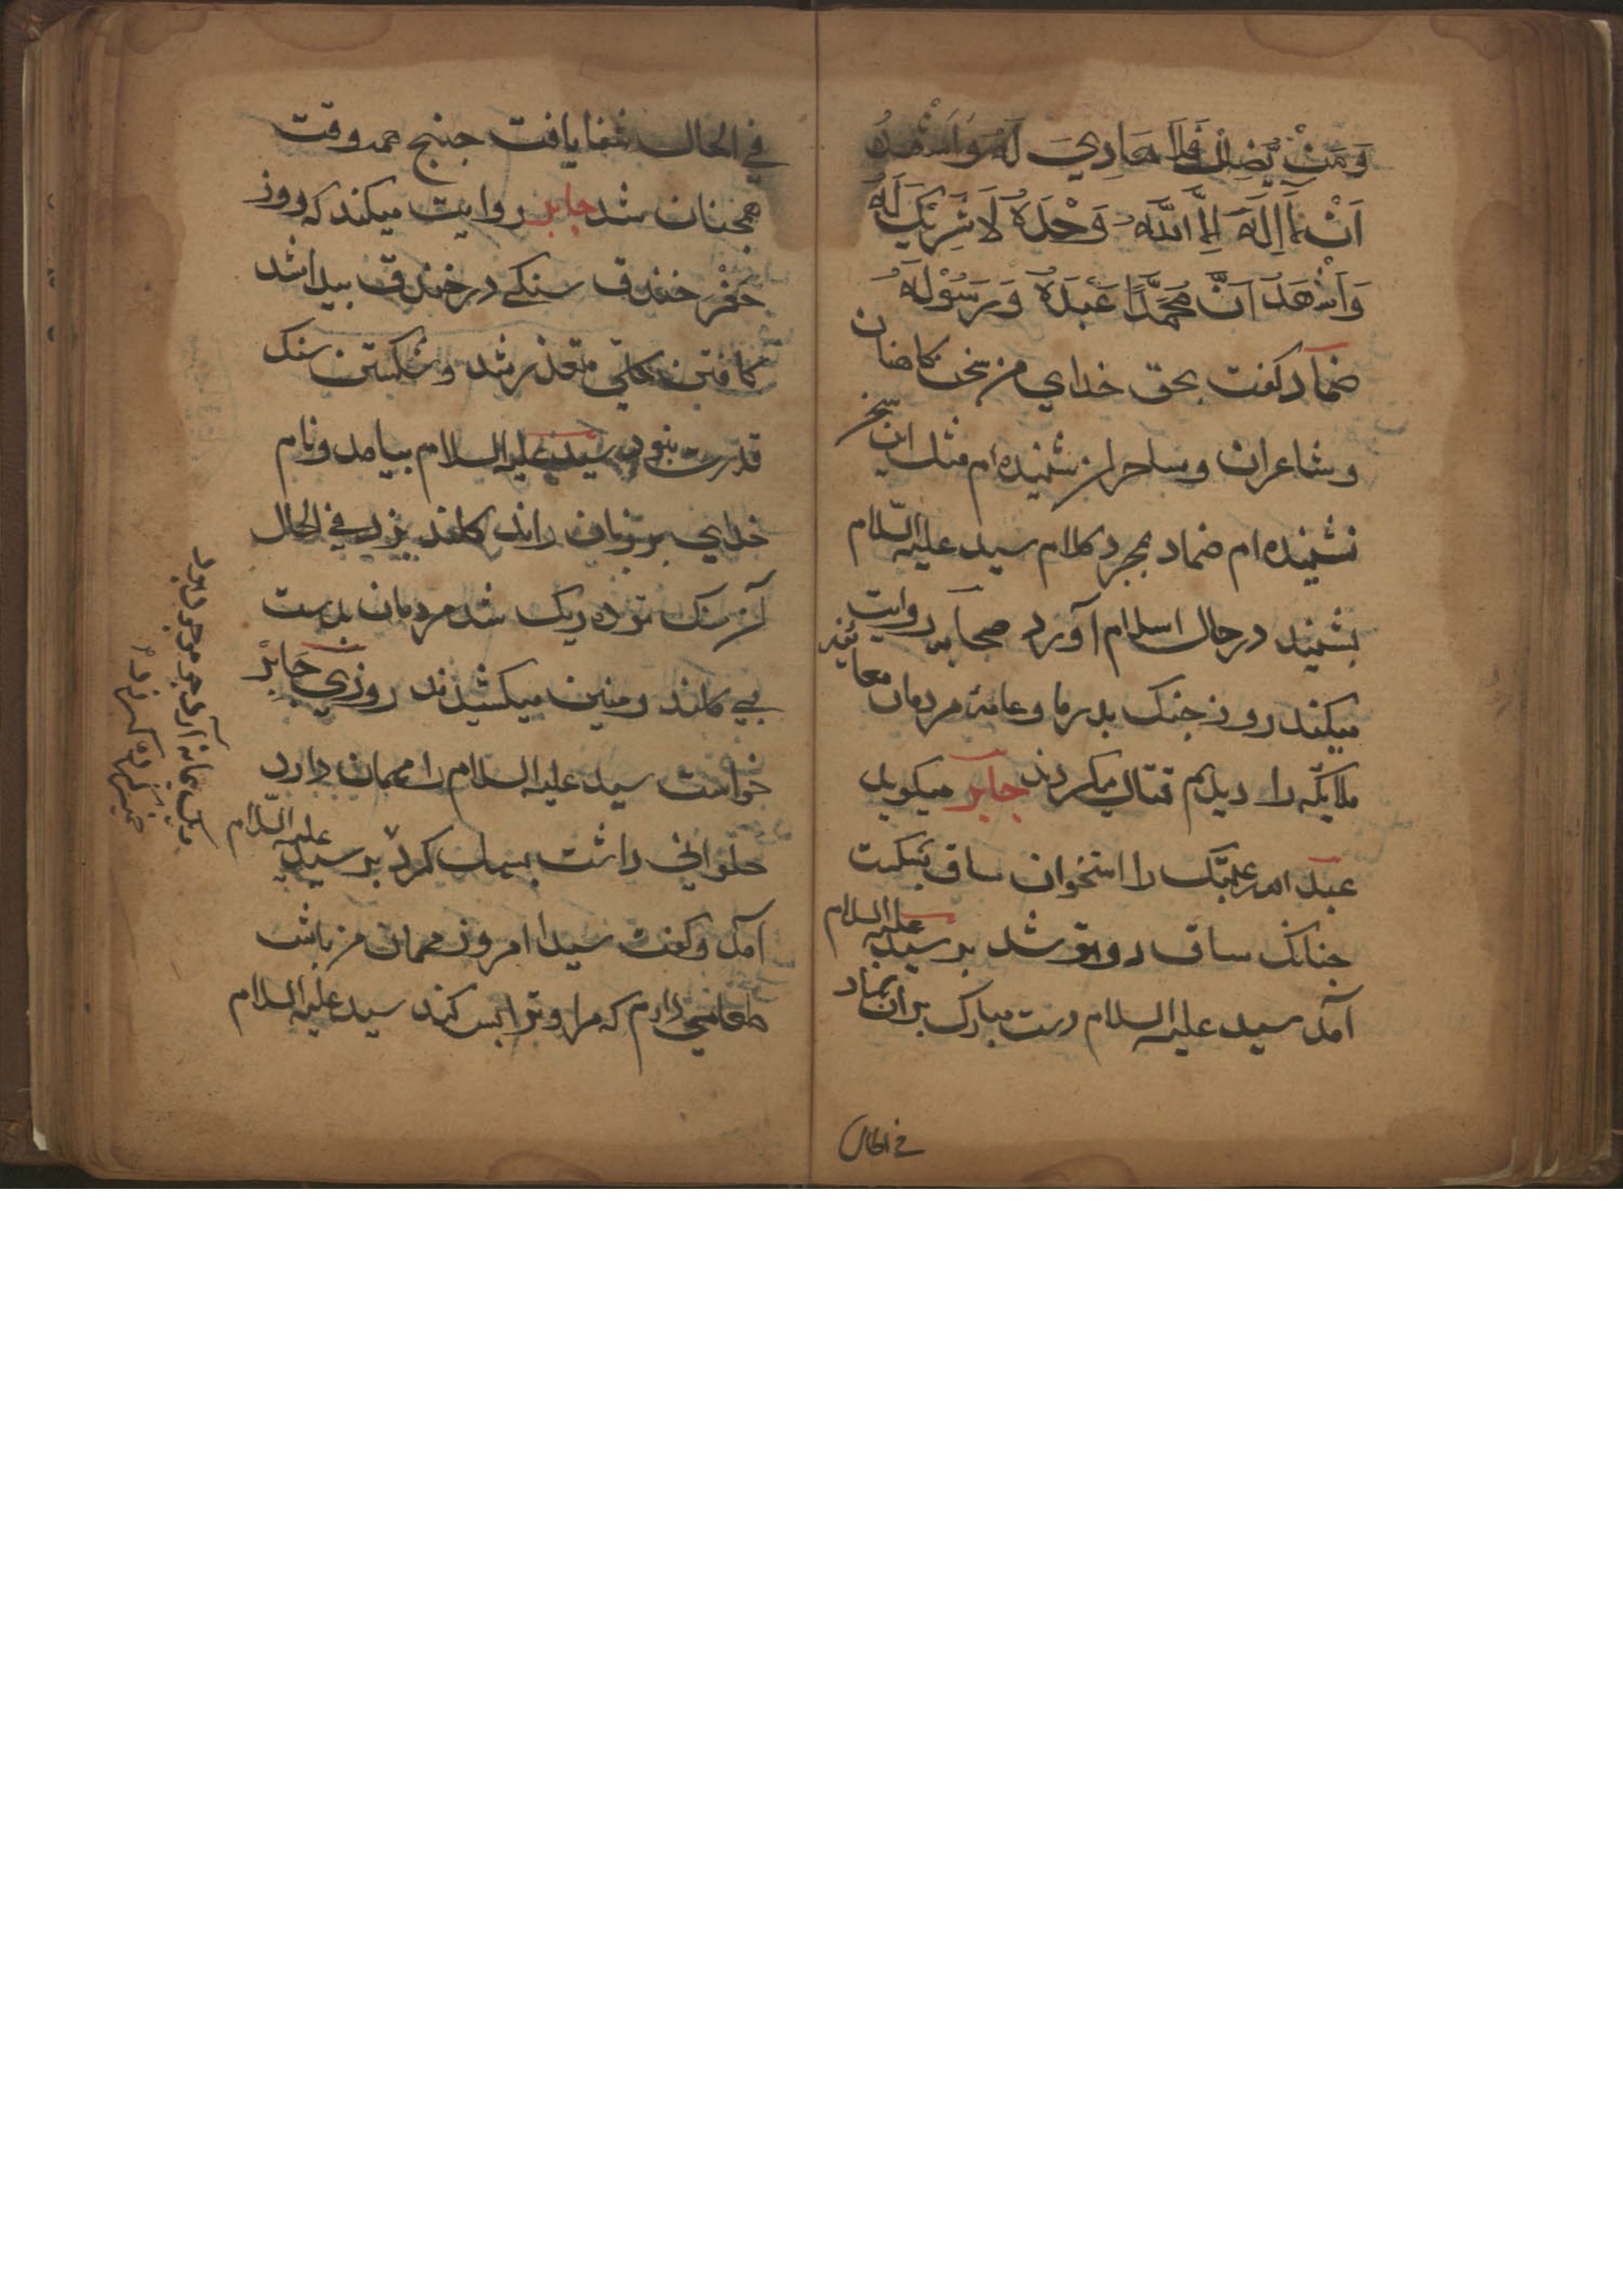 وَمَنْ يُّضِلْ فَلَا هَادِيَ لَهُ وَاَشْهَدُ
اَنْ لَّا اِلَهَ اِلَّا اللَّهُ وَحْدَهُ لَا شَرِيْكَ لَهُ
وَاَشْهَدُ اَنَّ مُحَمَّدًا عَبْدُهُ وَرَسُوْلُهُ
ضماد کفت بحق خدای من سخن کاهنان
و شاعران و ساحران شنیده ام مثل این سخن
نشنیده ام ضماد بمجرد کلام سید علیه السّلام
بشنید در حال اسلام آورد صحابه روایت
میکنند روز جنک بدر ما و عامهٔ مردمان معاینه
ملایکه را دیدیم قتال میکردند جابر میکوید
عبد الله عتیک را استخوان ساق بشکست
جنانک ساق دو توشد بر سید علیه السلام
آمد سید علیه السلام دست مبارک بران نهاد
في الحال
في الحال شفا یافت جنانج همه وقت
همجنان شد جابر روایت میکند که روز
حَفْر خندق سنکی در خندق پیدا شد
کافتن متعذر شد و شکستن سنک
قدرت نبود سید علیه السلام بیامد و نام
خدای بر زبان راند کلند بزد في الحال
آن سنک توده ریک شد مردمان بدست
بی کلند زمین میکشیدند روزی جَابرْ
خواست سید علیه السلام را مهمان دارد
حلوانی داشت بسمل کرد بر سید علیه السّلام
آمد و کفت سیدا امروز مهمان من باش
طعامی دارم که مرا و ترا بس کند سید علیه السلام